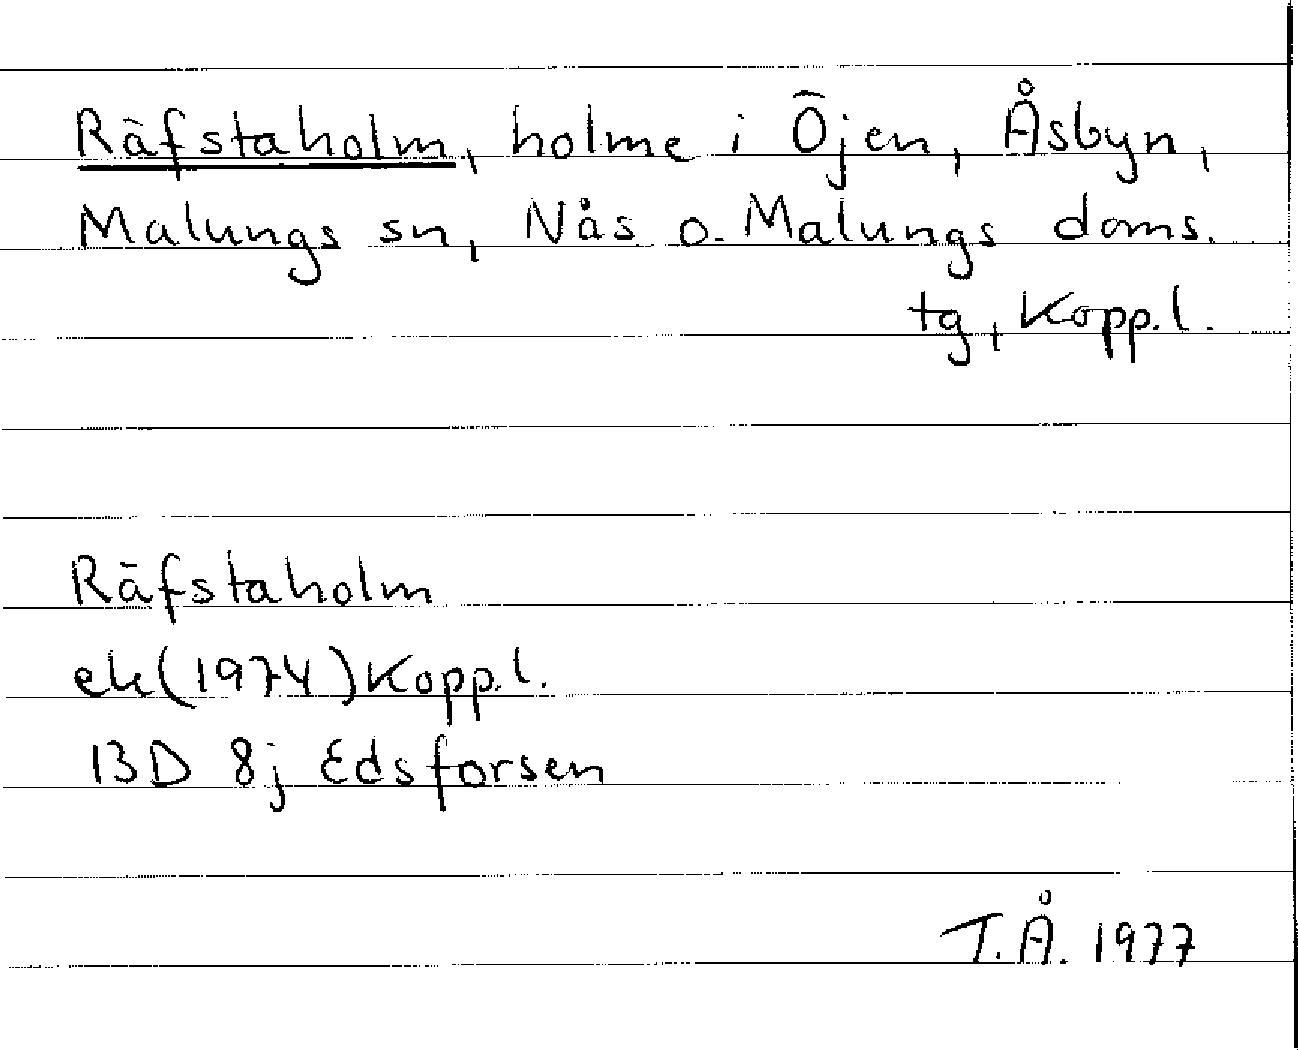 Räfstaholm, holme i Öjen, Åsbyn,
Malungs sn, Nås o. Malungs doms.
tg, Kopp.l.
Räfstaholm
ek(1974)Kopp.l.
13D 8j Edsforsen
T.Å. 1977